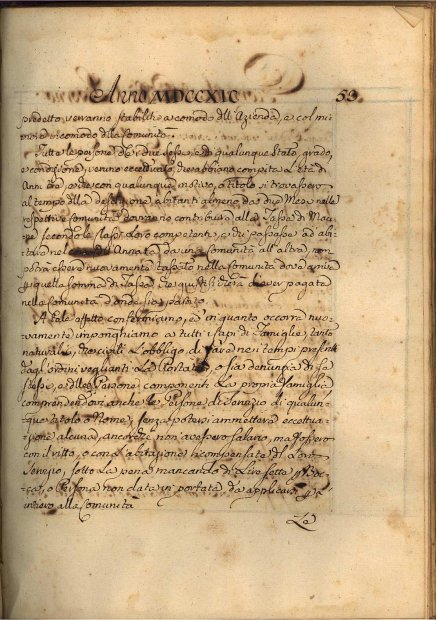 Anno MDCCXIC 59
predetto, verranno stabilite a comodo dell'Azienda, e col mi-
nore incomodo della Comunità.
Tutte le persone de i due sessi, e di qualunque Stato, grado,
e condizione, veruno eccettuato, che abbiano compita l'età di
Anni tre, e che con qualunque motivo, o titolo si trovassero
al tempo della descrizione abitanti almeno da due Mesi nelle
respettive Comunità dovranno contribuire alla Tassa di Maci-
ne secondo le classi loro competenti, e chi passasse ad abi-
tare nel Annata da una Comunità all'altra, non
potrà essere nuovamente tassato nella Comunità dove
quella somma di Tassa che giustificherà di aver pagata
nella Comunità d'onde si è partito.
A tale effetto confermiamo, ed in quanto occorra nuo-
vamente imponghiamo a tutti i Capi di Famiglie, tanto
naturali, che civili l'obbligo di fare nei tempi presenti
dagl'ordini veglianti la Portata, o sia denunzia di se
stesse, e delle Persone componenti la propria famiglia
comprendendovi anche le Persone di servizio di qualun-
que titolo, o Nome, senza potersi ammettere eccettua-
zione alcuna, ancorchè non avessero salario, ma fossero
con il vitto, o con l'abitazione ricompensate di loro
servizio, sotto la pena mancando di Lire sette p Boc-
ca, o Persona non data in portata da applicarsi p
intiero alla Comunità
Le